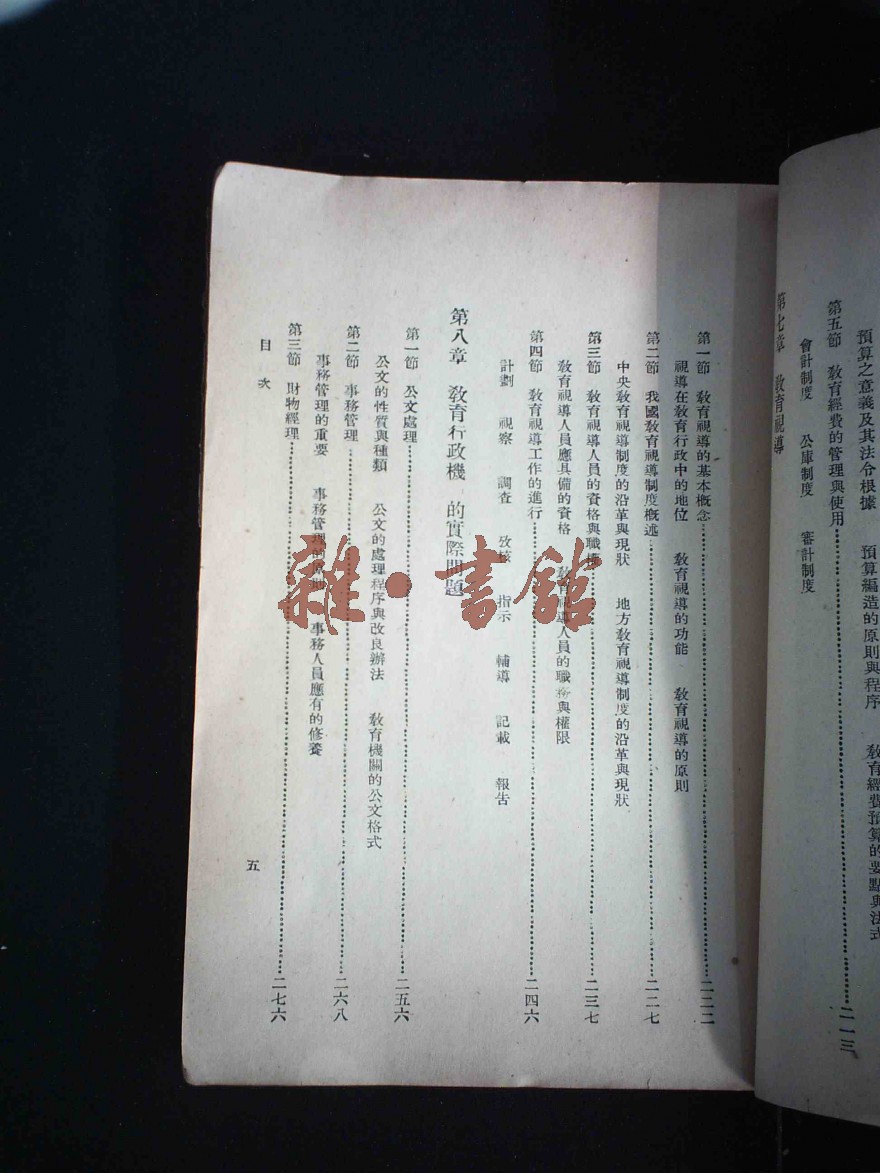 預算之意義及其法令根據　預算編造的原則與程序　教育經費預算的要點與法式
第五節　教育經費的管理與使用……二一三
會計制度　公庫制度　審計制度
第七章　教育視導
第一節　教育視導的基本概念……二二二
視導在教育行政中的地位　教育視導的功能　教育視導的原則
第二節　我國教育視導制度概述……二二七
中央教育視導制度的沿革與現狀　地方教育視導制度的沿革與現狀
第三節　教育視導人員的資格與職權……二三七
教育視導人員應具備的資格　教育視導人員的職務與權限
第四節　教育視導工作的進行……二四六
計劃　視察　調查　攷核　指示　輔導　記載　報告
第八章　教育行政機　的實際問題
第一節　公文處理……二五六
公文的性質與種類　公文的處理程序與改良辦法　教育機關的公文格式
第二節　事務管理……二六八
事務管理的重要　事務管理的原則　事務人員應有的修養
第三節　財物經理……二七六
目次
五
雜·書館